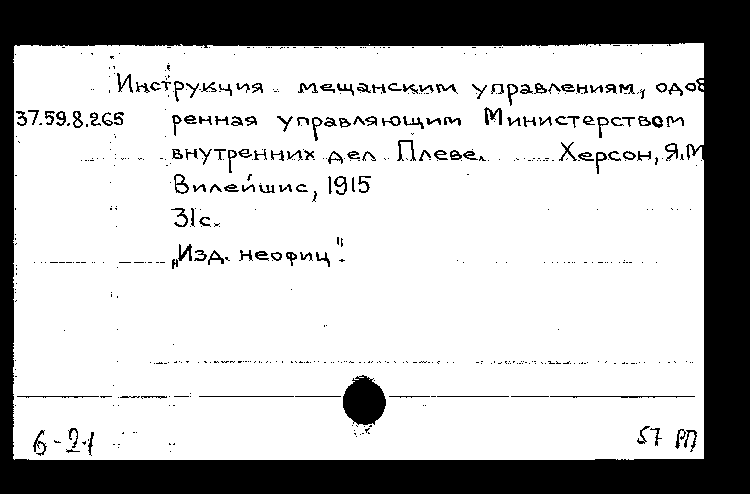 Инструкция мещанским управлениям, одоб
37.59.8.265 ренная управляющим Министерством
внутренних дел Плеве. Херсон, Я.М
Вилейшис, 1915
31с.
„Изд. неофиц".
6-21 57 РП